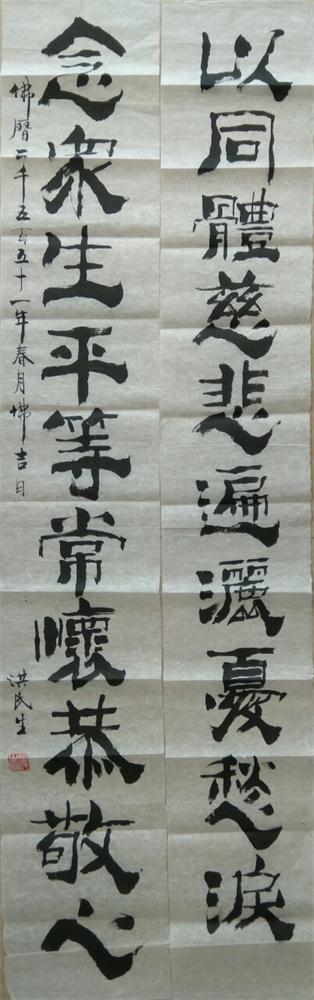 以同體慈悲遍灑憂愁淚
念眾生平等常懷恭敬心
佛曆二千五百五十一年春月佛吉日
洪民生